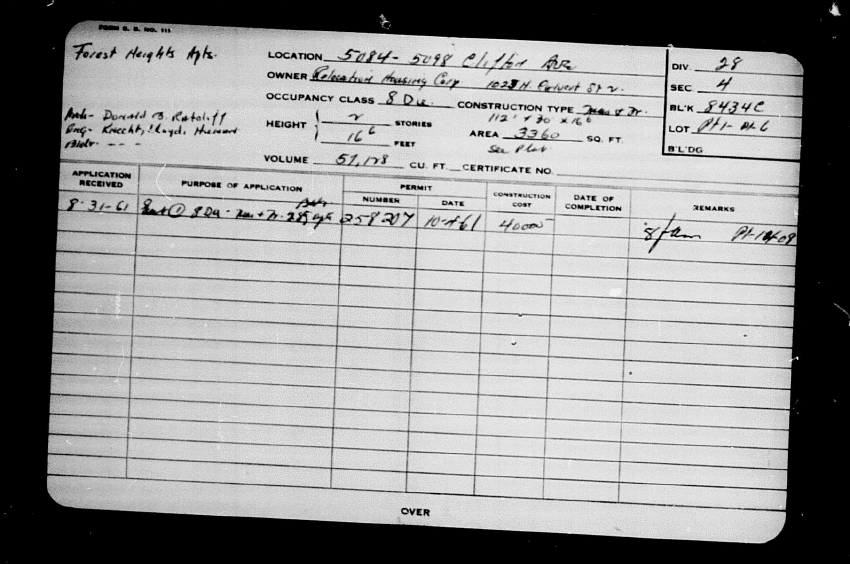 FORM B. B. NO. 111
Forest Heights Apts.
LOCATION 5084-5098 Clifton Ave
OWNER Relocation Housing Corp 1023 N. Calvert St
OCCUPANCY CLASS 8 Du. CONSTRUCTION TYPE Mas & Fr.
Arch- Donald B. Ratcliff
Eng-
Bldr- - - -
HEIGHT 2 STORIES
16 6 FEET
112' x 30' x 16 6
AREA 3360 SQ. FT.
See Plat
VOLUME CU. FT. CERTIFICATE NO.
DIV. 28
SEC. 4
BL'K 8434C
LOT Pt 1- Pt 6
B'L'DG
APPLICATION RECEIVED
PURPOSE OF APPLICATION
PERMIT
NUMBER
DATE
CONSTRUCTION COST
DATE OF COMPLETION
REMARKS
8-31-61 8 Du - Mas & Fr. 258207 10-4-61 40000
OVER